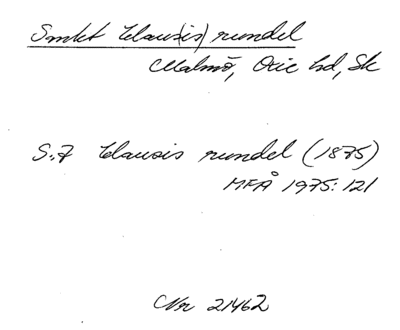 Sankt Claus(is) rundel
Malmö, Oxie hd, Sk
S:t Clausis rundel (1875)
MFÅ 1975:121
Nr 21462